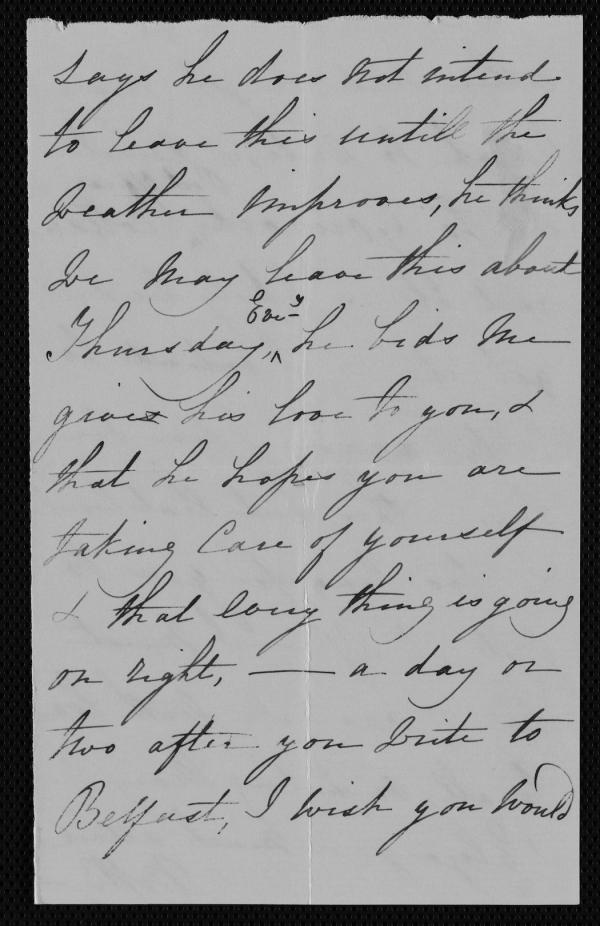 says he does not intend
to leave this untill the
weather improves, he thinks
we may leave this about
Eve-g
Thursday,^ he bids me
give his love to you, &
that he hopes you are
taking care of yourself
& that every thing is going
on right, — a day or
two after you write to
Belfast, I wish you would